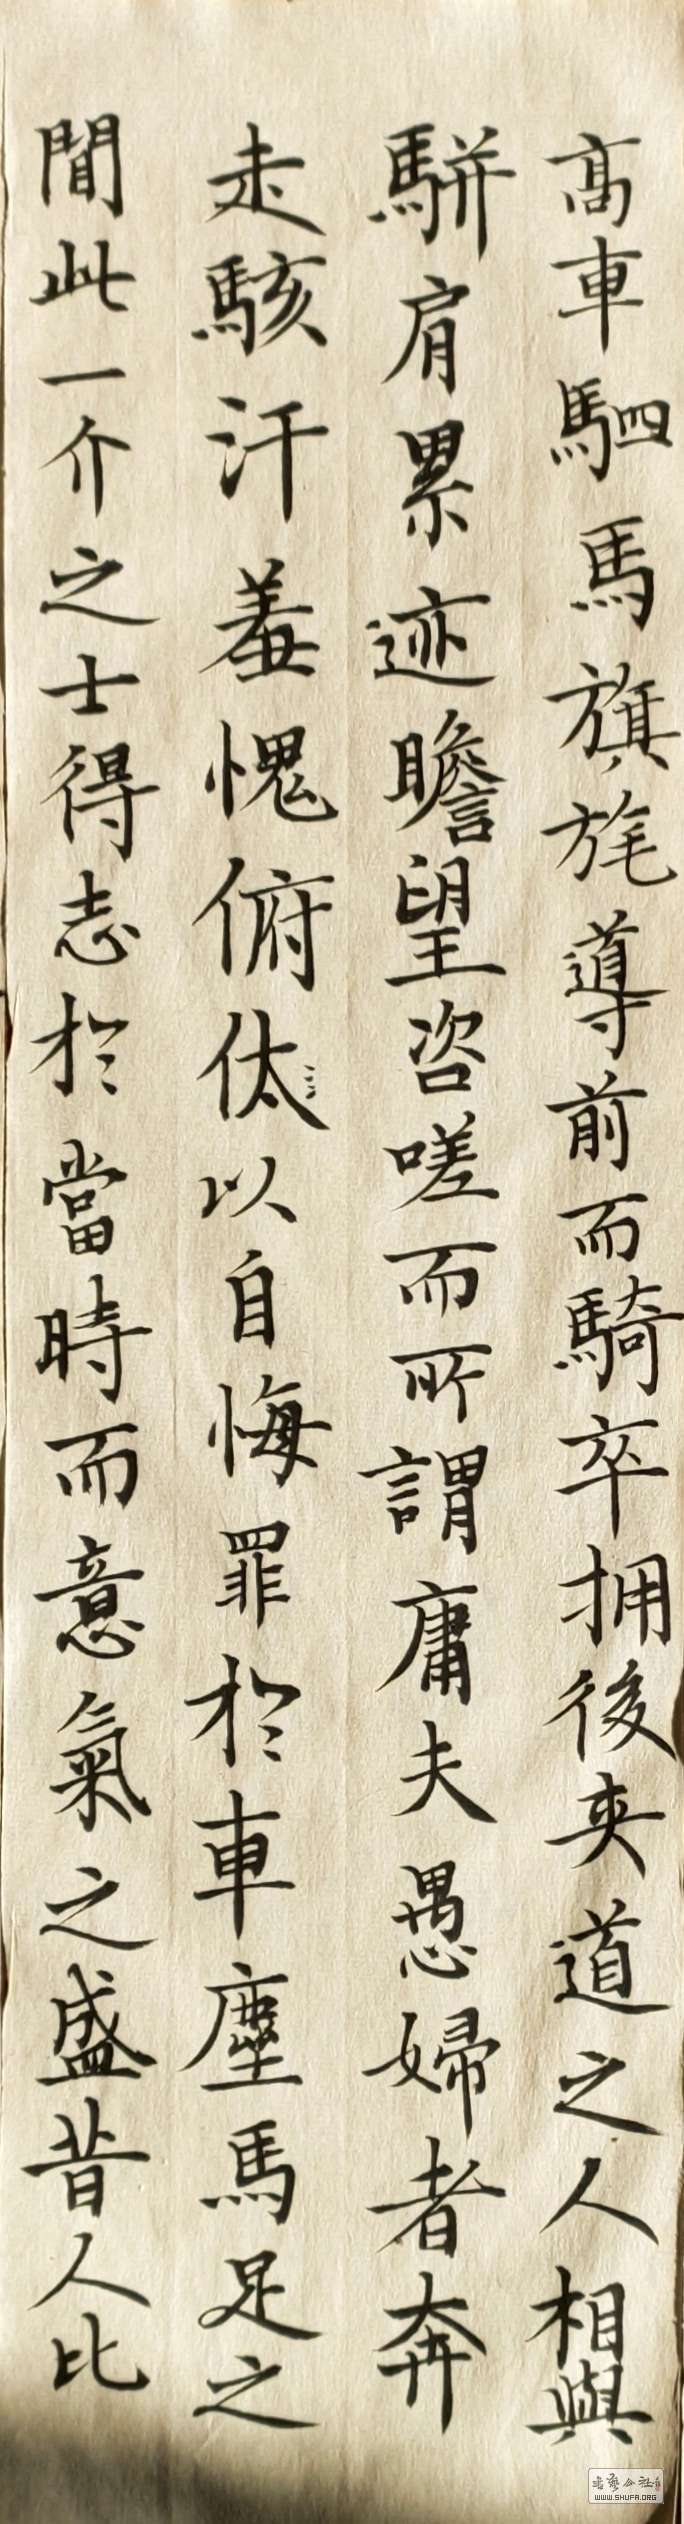 高車駟馬旗旄導前而騎卒拥後夾道之人相與
駢肩累迹瞻望咨嗟而所謂庸夫愚婦者奔
走駭汗羞愧俯伏以自悔罪於車塵馬足之
閒此一介之士得志於當時而意氣之盛昔人比
書藝公社
WWW.SHUFA.ORG